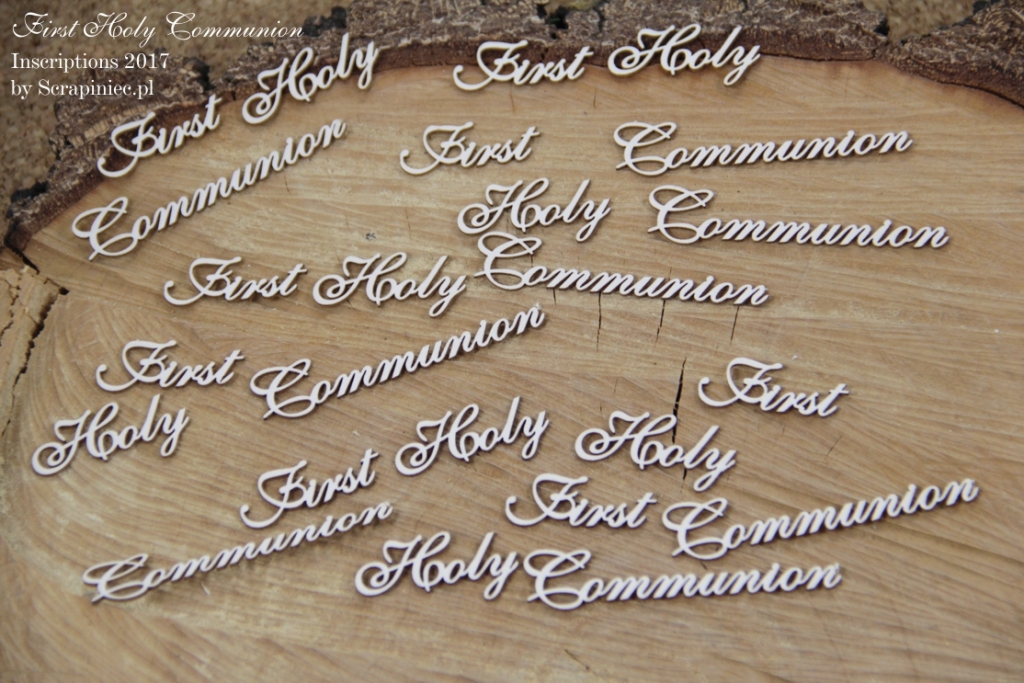 First Holy Communion
Inscriptions 2017
by Scrapiniec.pl
First Holy
First Holy
Communion
First
Communion
Holy
Communion
First Holy
Communion
First
Communion
First
Holy
Holy
Holy
First
First
Communion
Communion
Holy
Communion